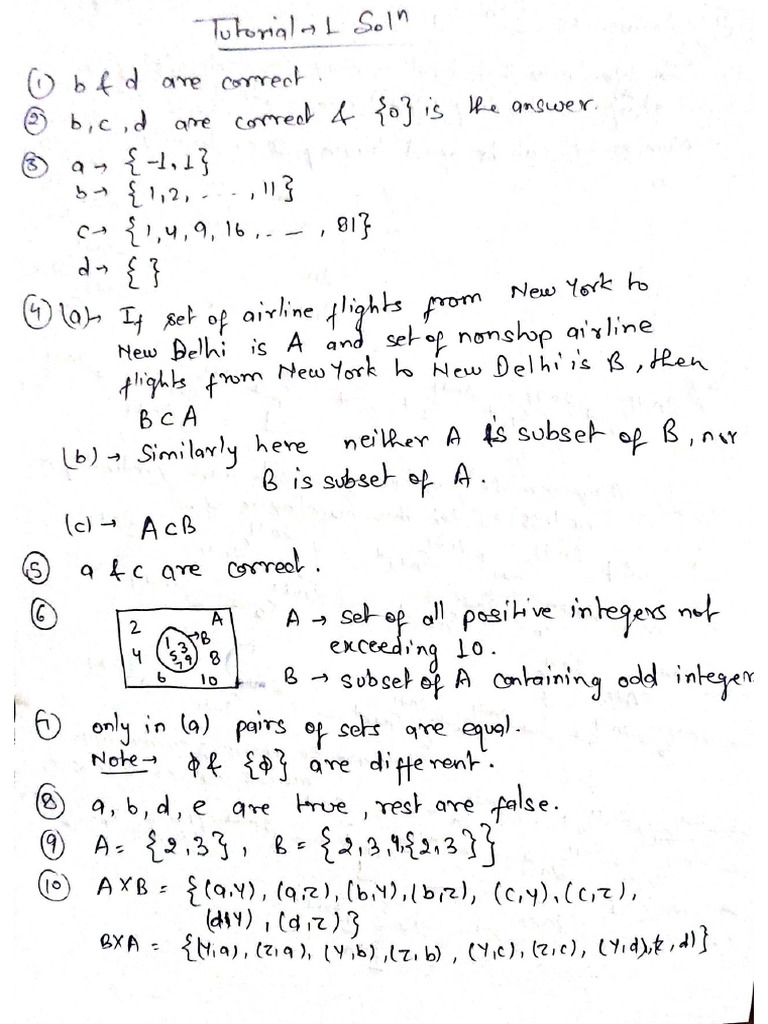 Tutorial → 1 Solⁿ
① b & d are correct.
② b, c, d are correct & {0} is the answer.
③ a → {-1, 1}
b → {1, 2, ..., 11}
c → {1, 4, 9, 16, ..., 81}
d → { }
④ (a) → If set of airline flights from New York to
New Delhi is A and set of nonstop airline
flights from New York to New Delhi is B, then
B ⊂ A
(b) → Similarly here neither A is subset of B, nor
B is subset of A.
(c) → A ⊂ B
⑤ a & c are correct.
⑥ A → set of all positive integers not
exceeding 10.
B → subset of A containing odd integer
2 A
1 3 → B
4 5 7 9 8
6 10
⑦ only in (a) pairs of sets are equal.
Note → ϕ & {ϕ} are different.
⑧ a, b, d, e are true, rest are false.
⑨ A = {2, 3}, B = {2, 3, 4, {2, 3}}
⑩ A×B = {(a, y), (a, z), (b, y), (b, z), (c, y), (c, z),
(d, y), (d, z)}
B×A = {(y, a), (z, a), (y, b), (z, b), (y, c), (z, c), (y, d), (z, d)}